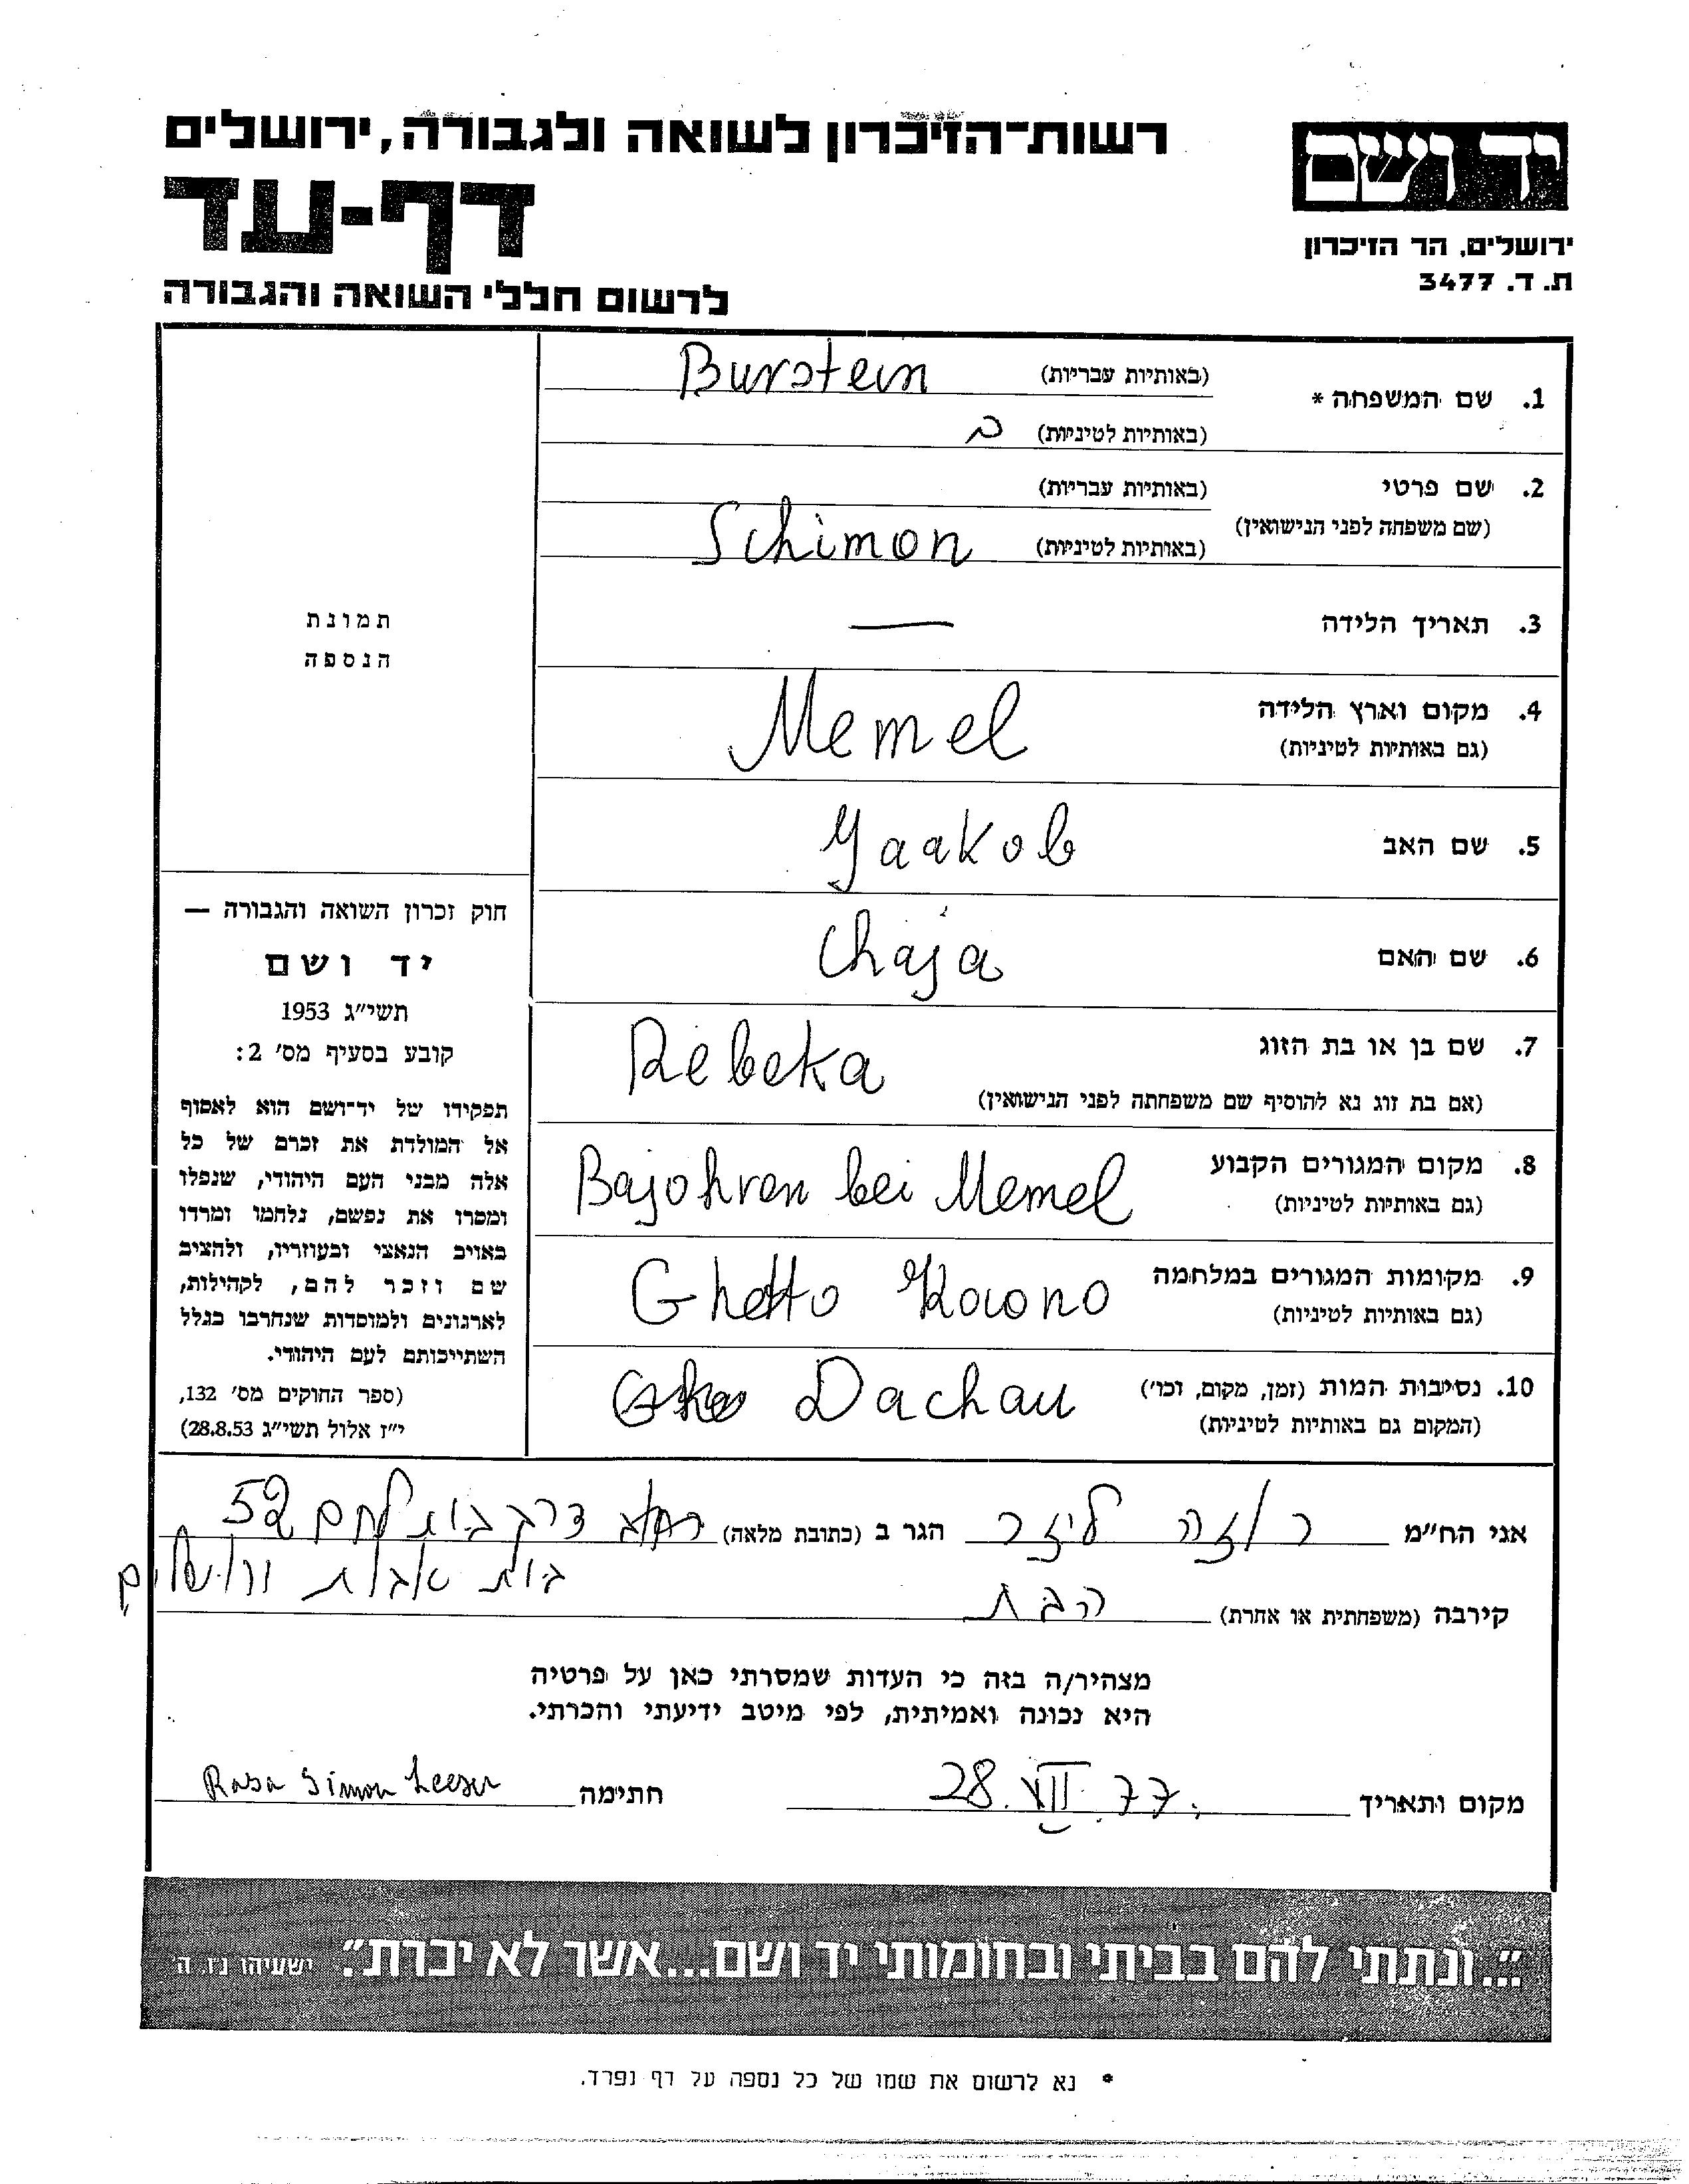 רשות־הזיכרון לשואה ולגבורה, ירושלים
יד ושם
דף-עד
ירושלים, הר הזיכרון
ת. ד. 3477
לרשום חללי השואה והגבורה
1. שם המשפחה * (באותיות עבריות) Burstein
(באותיות לטיניות)
2. שם פרטי (באותיות עבריות)
(שם משפחה לפני הנישואין) (באותיות לטיניות) Schimon
3. תאריך הלידה —
4. מקום וארץ הלידה Memel
(גם באותיות לטיניות)
5. שם האב Yaakob
6. שם האם Chaja
7. שם בן או בת הזוג Rebeka
(אם בת זוג נא להוסיף שם משפחתה לפני הנישואין)
8. מקום המגורים הקבוע Bajohren bei Memel
(גם באותיות לטיניות)
9. מקומות המגורים במלחמה Ghetto Kowno
(גם באותיות לטיניות)
10. נסיבות המות (זמן, מקום, וכו') Dachau
(המקום גם באותיות לטיניות)
תמונת
הנספה
חוק זכרון השואה והגבורה —
יד ושם
תשי"ג 1953
קובע בסעיף מס' 2:
תפקידו של יד־ושם הוא לאסוף
אל המולדת את זכרם של כל
אלה מבני העם היהודי, שנפלו
ומסרו את נפשם, נלחמו ומרדו
באויב הנאצי ובעוזריו, ולהציב
שם וזכר להם, לקהילות,
לארגונים ולמוסדות שנחרבו בגלל
השתייכותם לעם היהודי.
(ספר החוקים מס' 132,
י"ז אלול תשי"ג 28.8.53)
אני הח"מ רוזה ליזר הגר ב (כתובת מלאה) רחוב דרך בית לחם 52
בית אבות ירושלים
קירבה (משפחתית או אחרת) הבת
מצהיר/ה בזה כי העדות שמסרתי כאן על פרטיה
היא נכונה ואמיתית, לפי מיטב ידיעתי והכרתי.
מקום ותאריך 28. VII. 77. חתימה Rosa Simon Leeser
"...ונתתי להם בביתי ובחומותי יד ושם...אשר לא יכרת". ישעיהו נו, ה
* נא לרשום את שמו של כל נספה על דף נפרד.